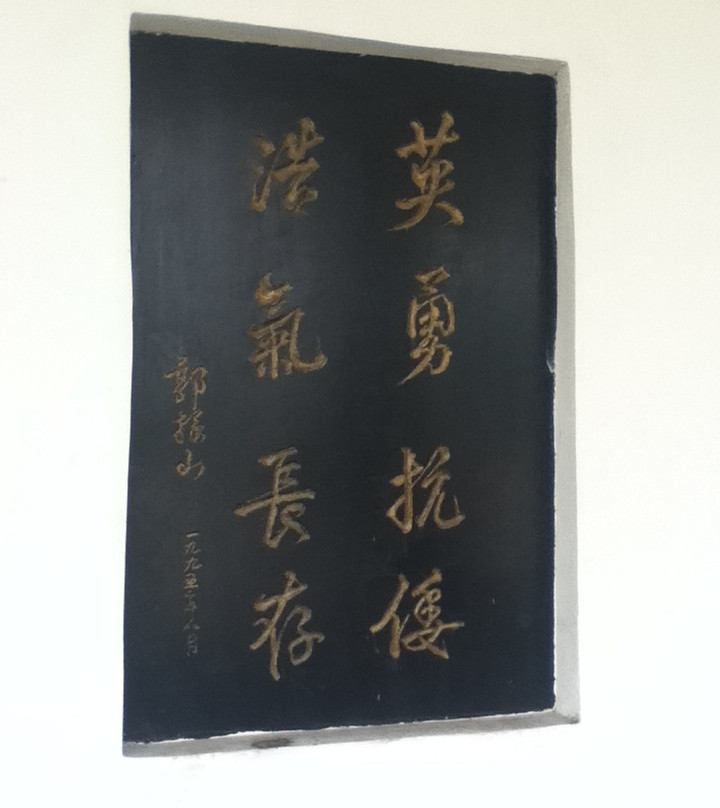 英勇抗倭
浩氣長存
郭振山
一九九五年八月